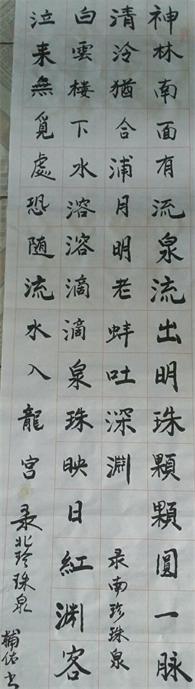 神林南面有流泉流出明珠顆顆圓一脉
清泠猶合浦月明老蚌吐深淵
录南珍珠泉
白雲楼下水溶溶滴滴泉珠映日紅淵客
泣来無覓處恐随流水入龍宮
录北珍珠泉